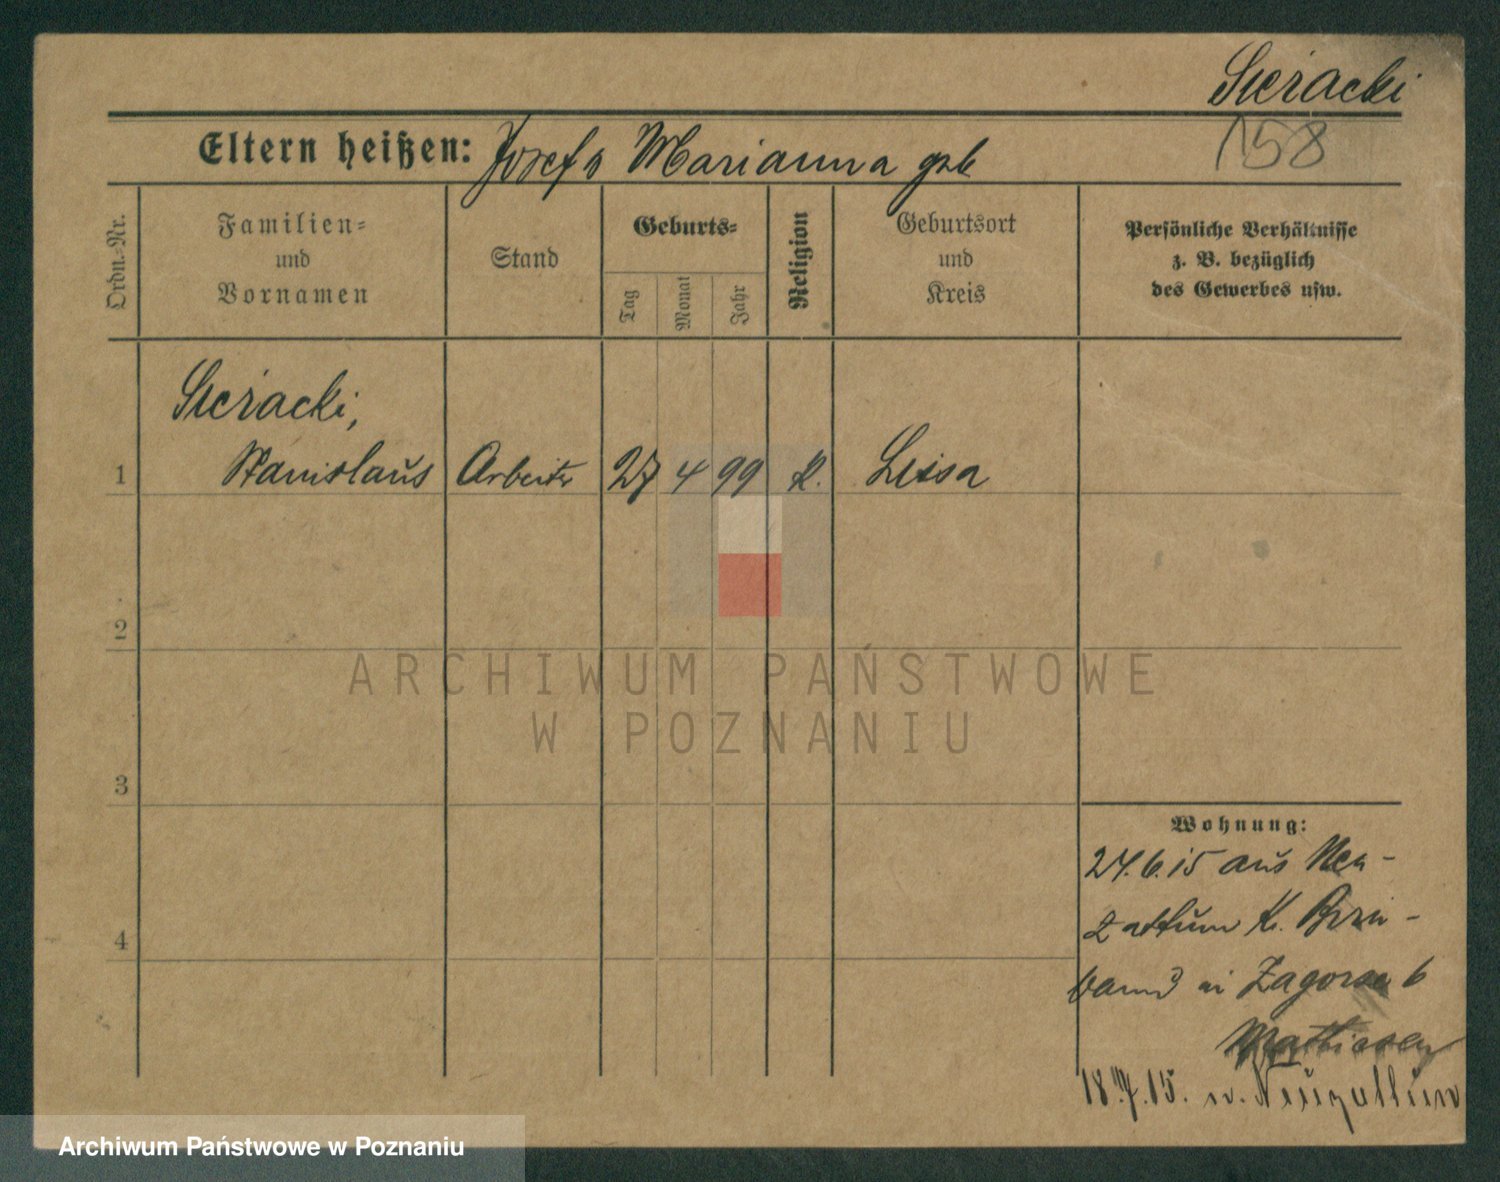 Sieracki
158
Eltern heißen: Josef u Marianna geb
Ordn.-Nr.
Familien-
und
Vornamen
Stand
Geburts-
Tag
Monat
Jahr
Religion
Geburtsort
und
Kreis
Persönliche Verhältnisse
z. B. bezüglich
des Gewerbes usw.
Sieracki,
1 Stanislaus Arbeiter 27 4 99 k. Lissa
2
3
4
ARCHIWUM PAŃSTWOWE
W POZNANIU
Wohnung:
24.6.15 aus Neu-
zattum K. Birn-
baum in Zagorze 6
Mathiasen
18.7.15. n. Neuzattum
Archiwum Państwowe w Poznaniu